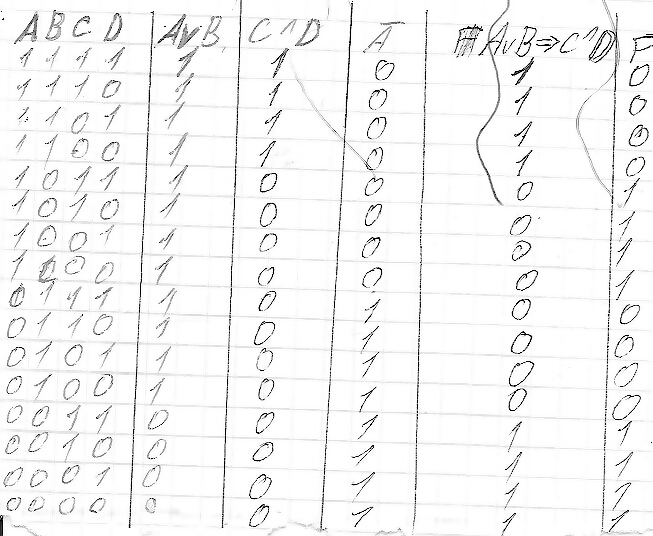 A B C D A∨B C∧D Ā A∨B⇒C∧D F
1 1 1 1 1 1 0 1 0
1 1 1 0 1 1 0 1 0
1 1 0 1 1 1 0 1 0
1 1 0 0 1 1 0 1 0
1 0 1 1 1 0 0 0 1
1 0 1 0 1 0 0 0 1
1 0 0 1 1 0 0 0 1
1 0 0 0 1 0 0 0 1
0 1 1 1 1 0 1 0 0
0 1 1 0 1 0 1 0 0
0 1 0 1 1 0 1 0 0
0 1 0 0 1 0 1 0 0
0 0 1 1 0 0 1 1 1
0 0 1 0 0 0 1 1 1
0 0 0 1 0 0 1 1 1
0 0 0 0 0 0 1 1 1